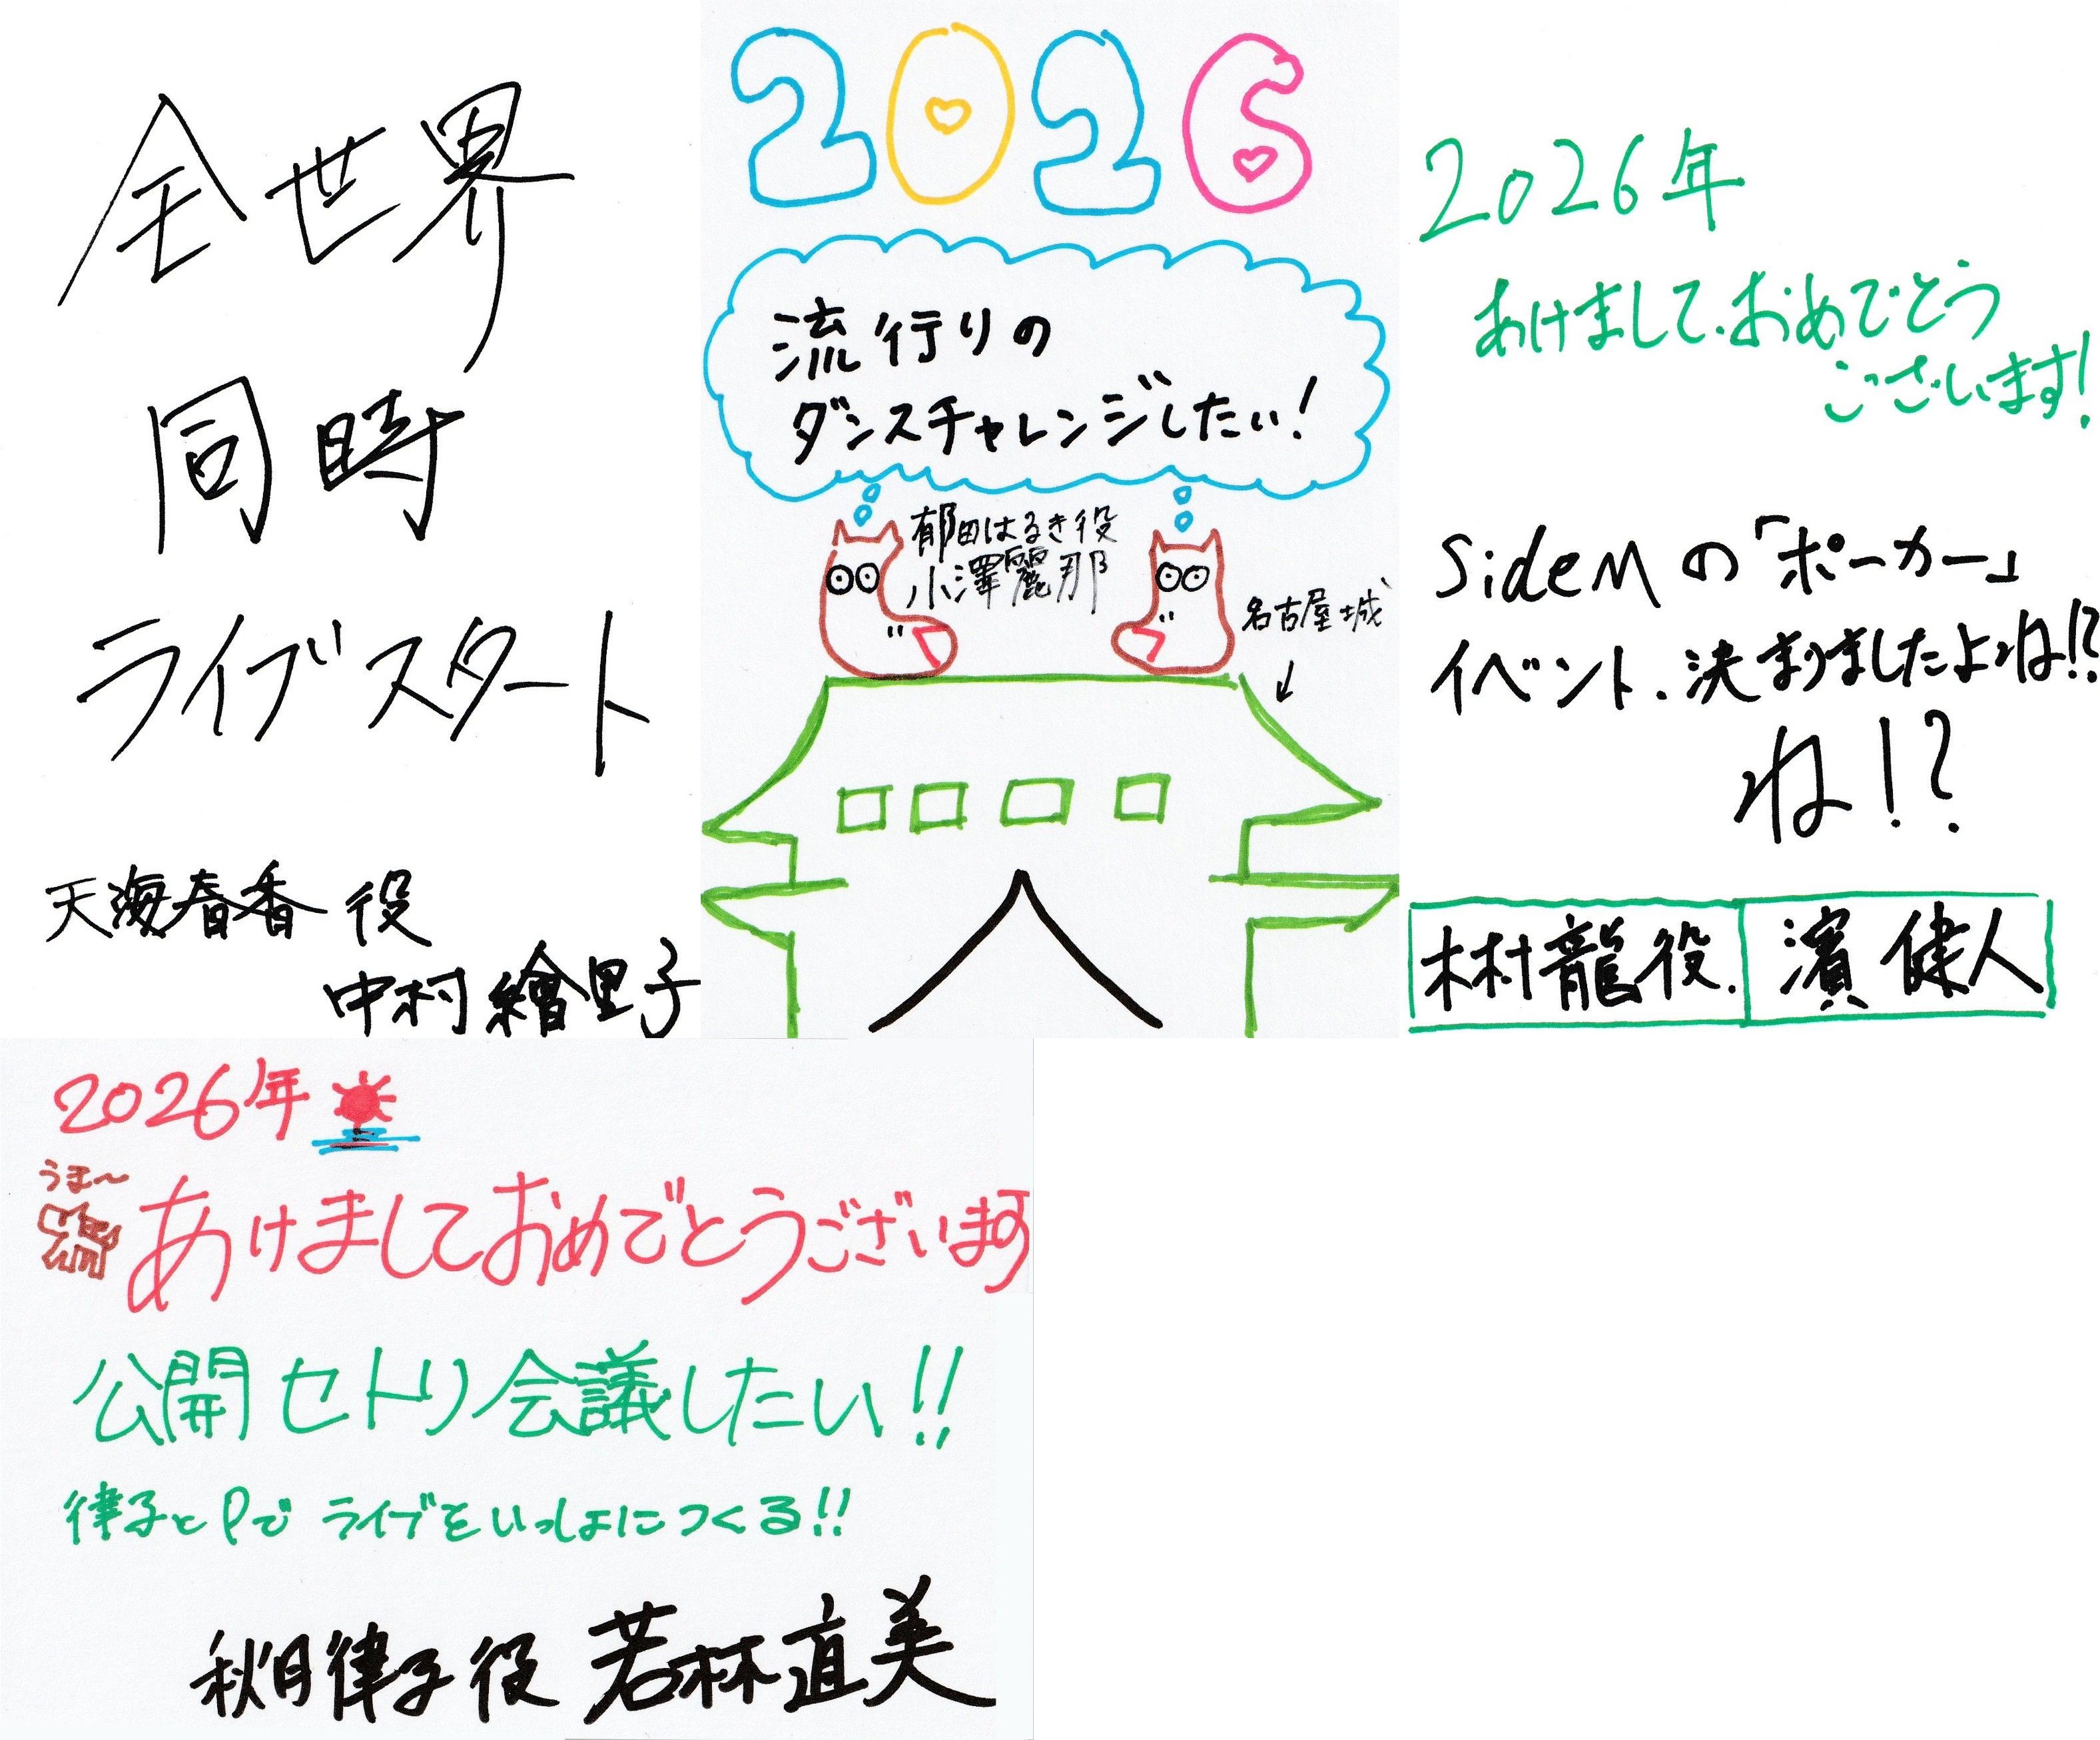 全世界
同時
ライブスタート
天海春香役
中村繪里子
2026
流行りの
ダンスチャレンジしたい!
郁田はるき役
小澤麗那
名古屋城
2026年
あけまして、おめでとう
ございます!
SideMの「ポーカー」
イベント、決まりましたよね!?
ね!?
木村龍役.
濱健人
2026年
うま〜
あけましておめでとうございます
公開セトリ会議したい!!
律子とPでライブをいっしょにつくる!!
秋月律子役 若林直美